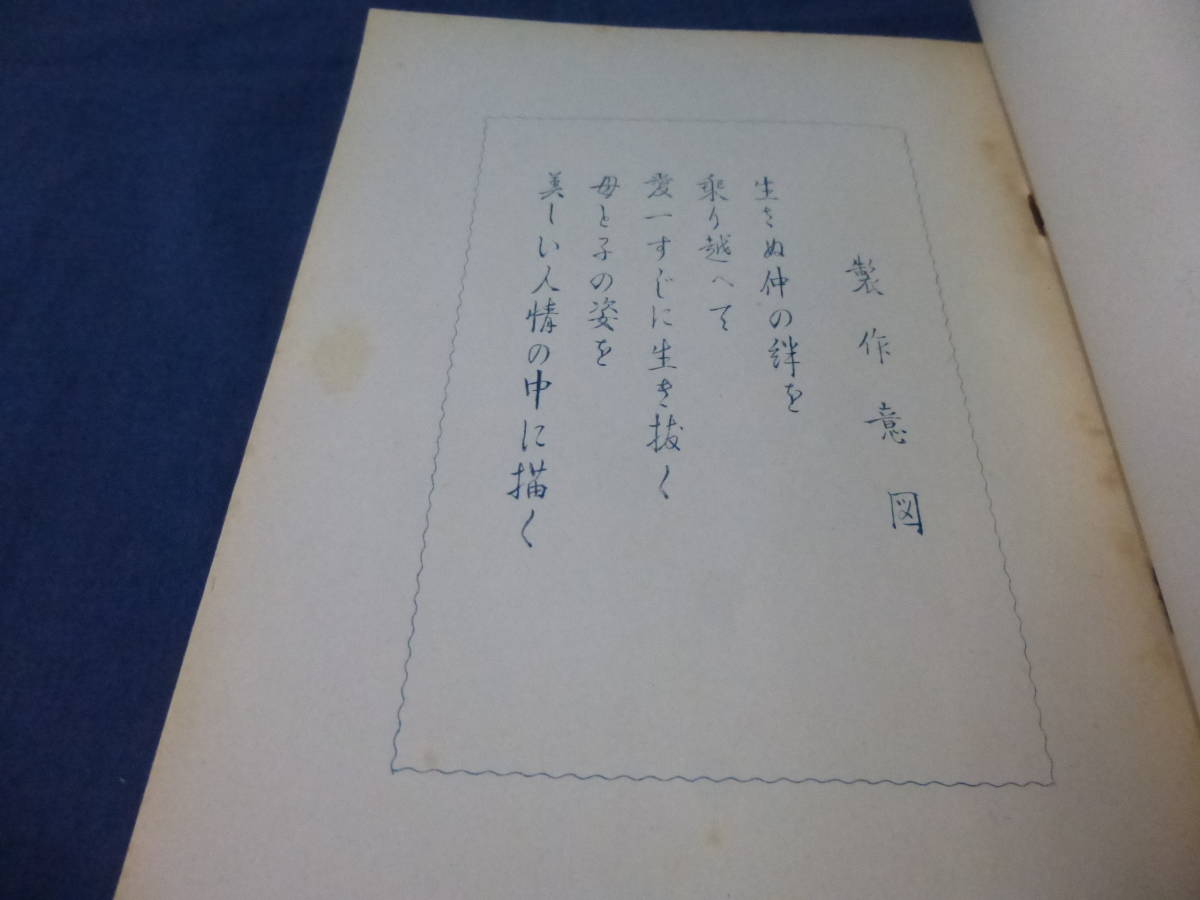 製作意図
生さぬ仲の絆を
乗り越へて
愛一すじに生き抜く
母と子の姿を
美しい人情の中に描く